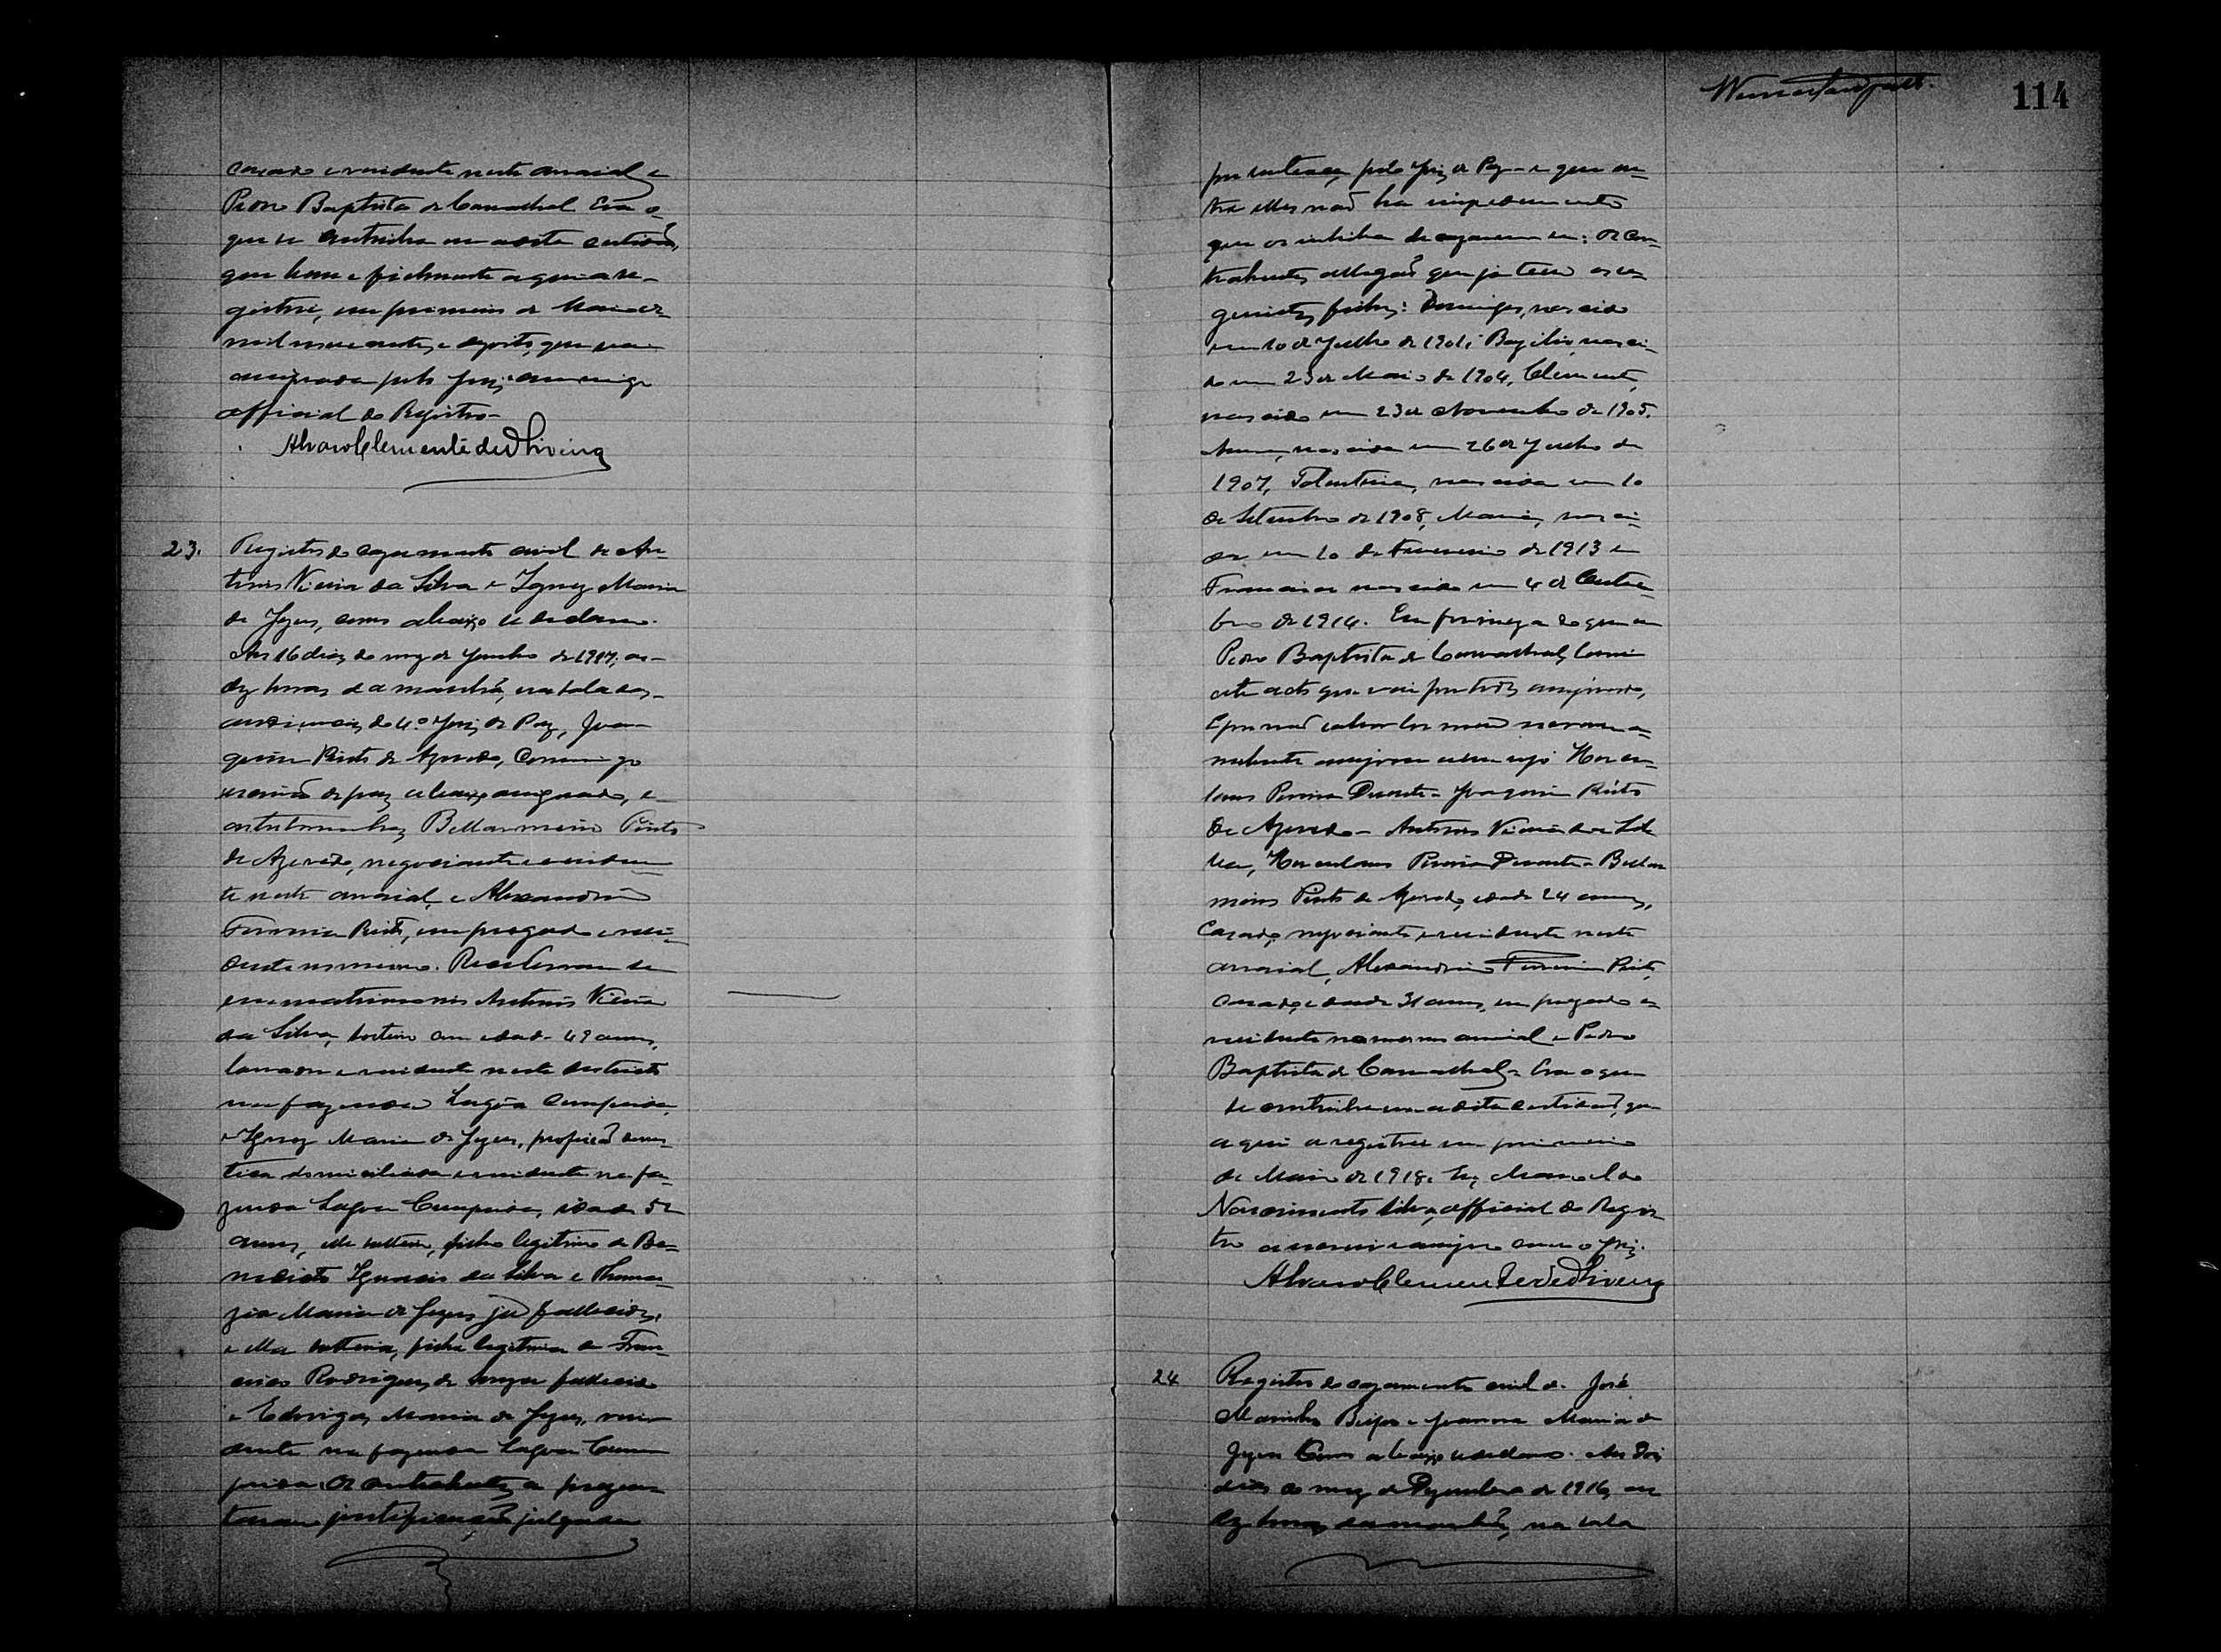 casado e residente neste arraial e
Pedro Baptista de Carvalhal Era o
que se continha em a dita certidão,
que bem e fielmente aqui a re-
gistrei, em primeiro de Maio de
mil nove centos e dezoito, que vai
assignada pelo Juiz commigo
official do Registro-
Alvaro Clemente de Oliveira
23. Registro do casamento civil de An-
tonio Vieira da Silva e Ignez Maria
de Jezus, como abaixo se declara.
Aos 16 dias do mez de Junho de 1917, as
dez horas da manhã, na sala das
audiencias do 4º Juiz de Paz, Joa-
quim Pinto de Azevedo, Commigo
escrivão de paz abaixo assignado, e
as testemunhas Bellarmino Pinto
de Azevedo, negociante e residen-
te neste arraial, e Alexandrino
Ferreira Pinto, empregado e resi-
dente no mesmo. Receberam se
em matrimonio Antonio Vieira
da Silva, solteiro com edade 49 annos,
lavrador e residente neste districto
na fazenda Lagôa Comprida,
e Ignez Maria de Jezus, profissão domes-
tica domiciliada e residente na fa-
zenda Lagoa Comprida, idade 52
annos, elle solteiro, filho legitimo de Be-
nedicto Ignacio da Silva e Thoma-
zia Maria de Jezus já fallecidos,
e ella solteira, filha legitima de Fran-
cisco Rodrigues de fallecido
e Edwiges Maria de Jezus, resi-
dente na fazenda Lagoa Com-
prida. Os contrahentes a presen-
taram justificação julgada
114
por sentença pelo Juiz de Paz e que en-
tre elles não ha impedimento
que os inhiba de casarem se; Os con-
trahentes allegão que ja tem os se-
guintes filhos: Domingos, nascido
em 10 de Julho de 1901, Bazilio, nasci-
do em 23 de Maio de 1904, Clemente,
nascido em 23 de Novembro de 1905.
Anna, nascida em 26 de Julho de
1907, Tolentina, nascida em 10
de Setembro de 1908, Maria, nasci-
da em 10 de Fevereiro de 1913 e
Francisca nascida em 4 de Outu-
bro de 1914. Em firmeza do que eu
Pedro Baptista de Carvalhal, lavrei
este acto que vai por todos assignado,
E por não saber ler nem escrever a
nubente assigna a seu rogo Hercu-
lano Pereira Duarte - Joaquim Pinto
de Azevedo - Antonio Vieira da Sil-
va, Herculano Pereira Duarte - Bellar-
mino Pinto de Azevedo, edade 24 annos,
Casado, negociante e residente neste
arraial, Alexandrino Ferreira Pinto,
casado, edade 31 annos, empregado e
residente no mesmo arraial e Pedro
Baptista de Carvalhal. Era o que
se continha em a dita certidão, que
aqui a registrei em primeiro
de Maio de 1918. Eu, Manoel do
Nascimento Silva, official do Regis-
tro a escrevi e assigno com o Juiz.
Alvaro Clemente de Oliveira
24 Registro do casamento civil de José
Marinho e Joanna Maria de
Jezus Como abaixo se declara. Aos dois
dias do mez de Dezembro de 1916, as
dez horas da manhã, na sala